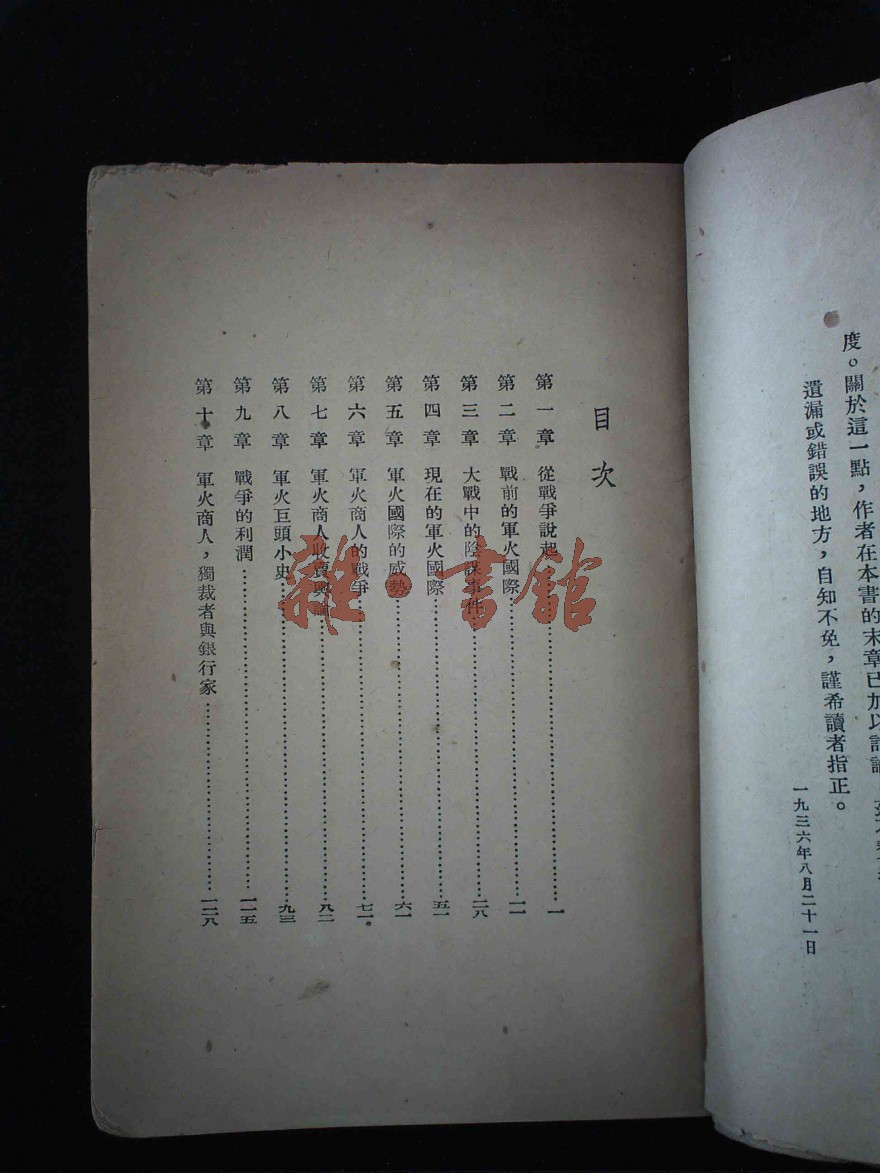 度。關於這一點，作者在本書的末章已加以討論
遺漏或錯誤的地方，自知不免，謹希讀者指正。
一九三六年八月二十一日
目次
第一章 從戰爭說起…………一
第二章 戰前的軍火國際…………一一
第三章 大戰中的陰謀事件…………二八
第四章 現在的軍火國際…………五一
第五章 軍火國際的威勢…………六一
第六章 軍火商人的戰爭…………七一
第七章 軍火商人收賣輿論…………八二
第八章 軍火巨頭小史…………九三
第九章 戰爭的利潤…………一一五
第十章 軍火商人，獨裁者與銀行家…………一二八
雜·書館